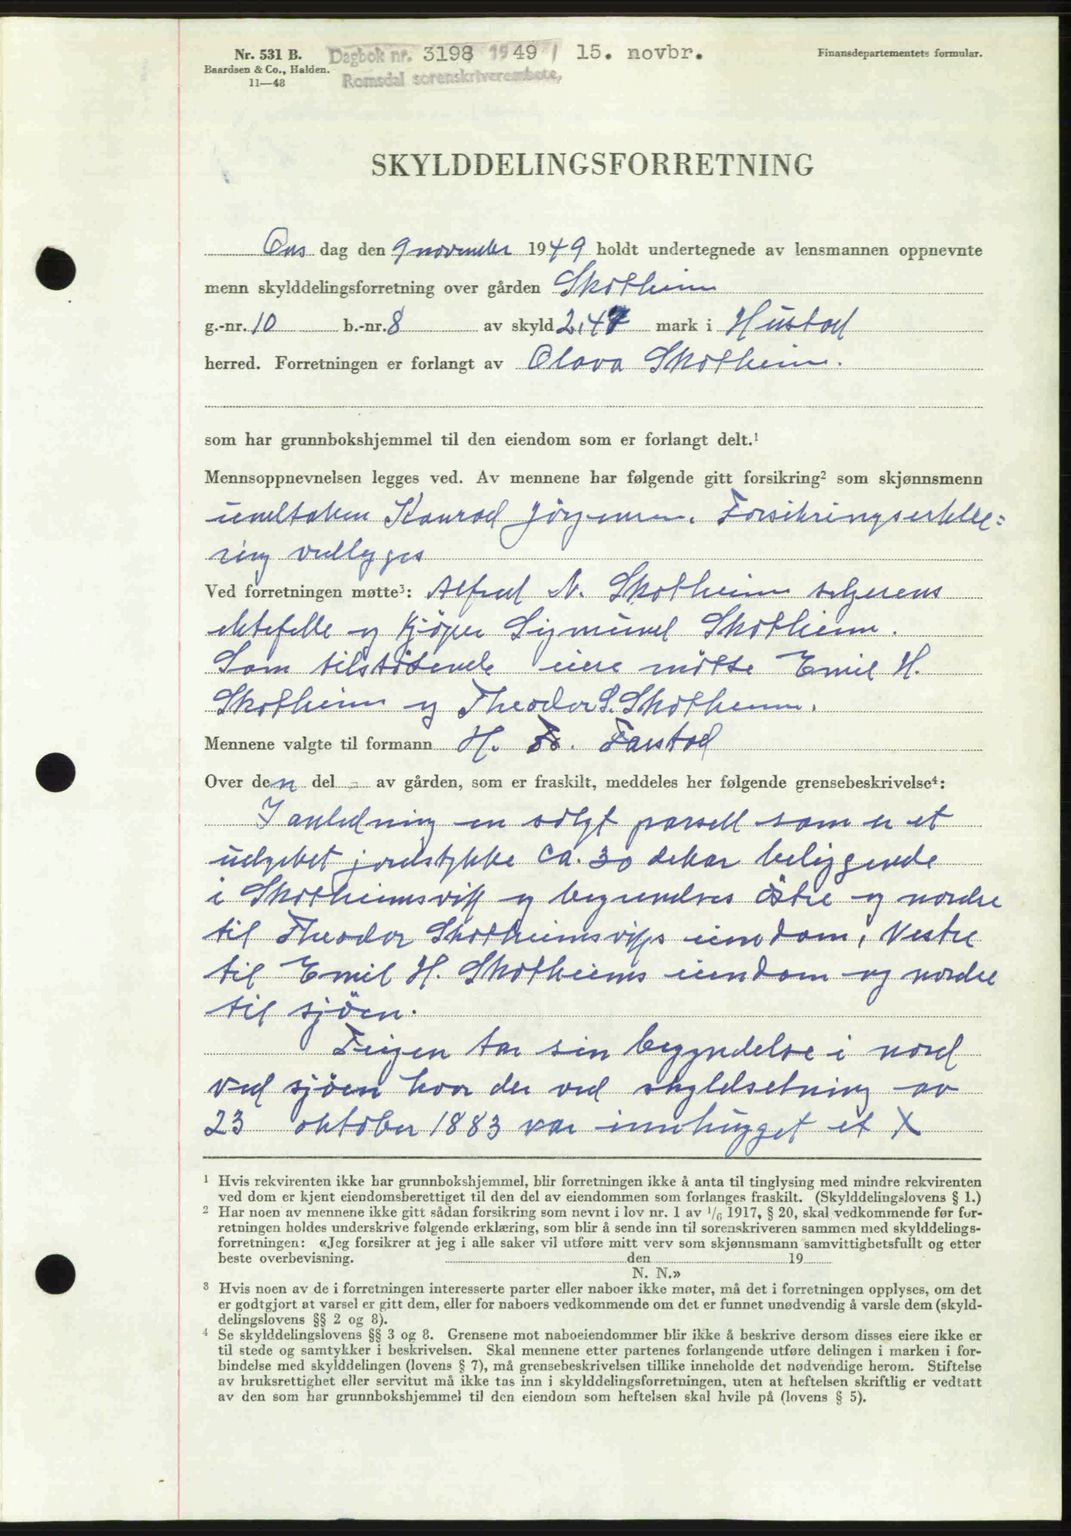 Nr. 531 B.
Baardsen & Co., Halden.
11—48
Dagbok nr. 3198 1949 / 15. novbr.
Romsdal sorenskriverembete,
Finansdepartementets formular.
SKYLDDELINGSFORRETNING
Ons dag den 9 november 1949 holdt undertegnede av lensmannen oppnevnte
menn skylddelingsforretning over gården Skotheim
g.-nr. 10 b.-nr. 8 av skyld 2,47 mark i Hustad
herred. Forretningen er forlangt av Olava Skotheim.
som har grunnbokshjemmel til den eiendom som er forlangt delt.¹
Mennsoppnevnelsen legges ved. Av mennene har følgende gitt forsikring² som skjønnsmenn
undtaken Konrad Jörgensen. Forsikringserklæ=
ring vedlegges
Ved forretningen møtte³: Alfred N. Skotheim selgerens
ektefelle og kjøper Sigmund Skotheim.
Som tilstötende eiere mötte Emil H.
Skotheim og Theodor S. Skotheim.
Mennene valgte til formann H. Fr. Farstad
Over den del av gården, som er fraskilt, meddeles her følgende grensebeskrivelse⁴:
I anledning en solgt parsell som er et
udyrket jordstykke ca. 30 dekar beliggende
i Skotheimsvik og begrendses östre og nordre
til Theodor Skotheimsviks eiendom, Vestre
til Emil H. Skotheims eiendom og nordre
til sjöen.
Feigen tar sin begyndelse i nord
ved sjöen hvor der ved skyldsetning av
23 oktober 1883 var innhugget et X
¹ Hvis rekvirenten ikke har grunnbokshjemmel, blir forretningen ikke å anta til tinglysing med mindre rekvirenten
ved dom er kjent eiendomsberettiget til den del av eiendommen som forlanges fraskilt. (Skylddelingslovens § 1.)
² Har noen av mennene ikke gitt sådan forsikring som nevnt i lov nr. 1 av 1/6 1917, § 20, skal vedkommende før for-
retningen holdes underskrive følgende erklæring, som blir å sende inn til sorenskriveren sammen med skylddelings-
forretningen: «Jeg forsikrer at jeg i alle saker vil utføre mitt verv som skjønnsmann samvittighetsfullt og etter
beste overbevisning. den 19
N. N.»
³ Hvis noen av de i forretningen interesserte parter eller naboer ikke møter, må det i forretningen opplyses, om det
er godtgjort at varsel er gitt dem, eller for naboers vedkommende om det er funnet unødvendig å varsle dem (skyld-
delingslovens §§ 2 og 8).
⁴ Se skylddelingslovens §§ 3 og 8. Grensene mot naboeiendommer blir ikke å beskrive dersom disses eiere ikke er
til stede og samtykker i beskrivelsen. Skal mennene etter partenes forlangende utføre delingen i marken i for-
bindelse med skylddelingen (lovens § 7), må grensebeskrivelsen tillike inneholde det nødvendige herom. Stiftelse
av bruksrettighet eller servitut må ikke tas inn i skylddelingsforretningen, uten at heftelsen skriftlig er vedtatt
av den som har grunnbokshjemmel til den eiendom som heftelsen skal hvile på (lovens § 5).